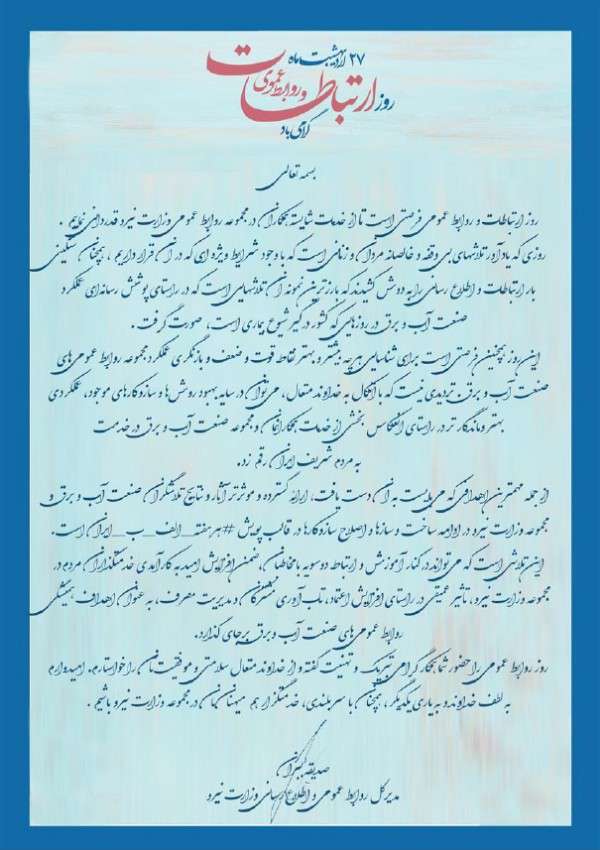 ۲۷ اردیبهشت ماه
روز ارتباطات و روابط عمومی
گرامی باد
بسمه تعالی
روز ارتباطات و روابط عمومی فرصتی است تا از خدمات شایسته همکاران در مجموعه روابط عمومی وزارت نیرو قدردانی نماییم .
روزی که یادآور تلاشهای بی وقفه و خالصانه مردان و زنانی است که با وجود شرایط ویژه ای که در آن قرار داریم ، همچنان سنگینی
بار ارتباطات و اطلاع رسانی را به دوش کشیدند که بارزترین نمونه آن تلاشهایی است که در راستای پوشش رسانه ای عملکرد
صنعت آب و برق در روزهایی که کشور درگیر شیوع بیماری است، صورت گرفت .
این روز همچنین فرصتی است برای شناسایی هرچه بیشتر و بهتر نقاط قوت و ضعف و بازنگری عملکرد مجموعه روابط عمومی های
صنعت آب و برق. تردیدی نیست که با اتکال به خداوند متعال، می توان در سایه بهبود روش ها و سازوکارهای موجود، عملکردی
بهتر و ماندگارتر در راستای انعکاس بخشی از خدمات همکارانمان و مجموعه صنعت آب و برق در خدمت
به مردم شریف ایران رقم زد.
از جمله مهمترین اهدافی که می بایست به آن دست یافت، ارایه گسترده و موثرتر آثار و نتایج تلاشگران صنعت آب و برق و
مجموعه وزارت نیرو در ادامه ساخت و سازها و اصلاح سازوکارها در قالب پویش #هرهفته_الف_ب_ایران است.
این تلاشی است که می تواند در کنار آموزش و ارتباط دوسویه با مخاطبان، ضمن افزایش امید به کارآمدی خدمتگذاران مردم در
مجموعه وزارت نیرو، تأثیر عمیقی در راستای افزایش اعتماد، تاب آوری مشترکان و مدیریت مصرف، به عنوان اهداف همیشگی
روابط عمومی های صنعت آب و برق برجای گذارد.
روز روابط عمومی را حضور شما همکار گرامی تبریک و تهنیت گفته و از خداوند متعال سلامتی و موفقیتتان را خواستارم. امیدوارم
به لطف خداوند و به یاری یکدیگر، همچنان با سربلندی، خدمتگزار هم میهنانمان در مجموعه وزارت نیرو باشیم .
مدیرکل روابط عمومی و اطلاع رسانی وزارت نیرو